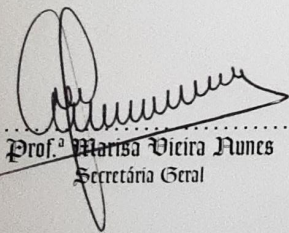 Prof.ª Marisa Vieira Nunes
Secretária Geral